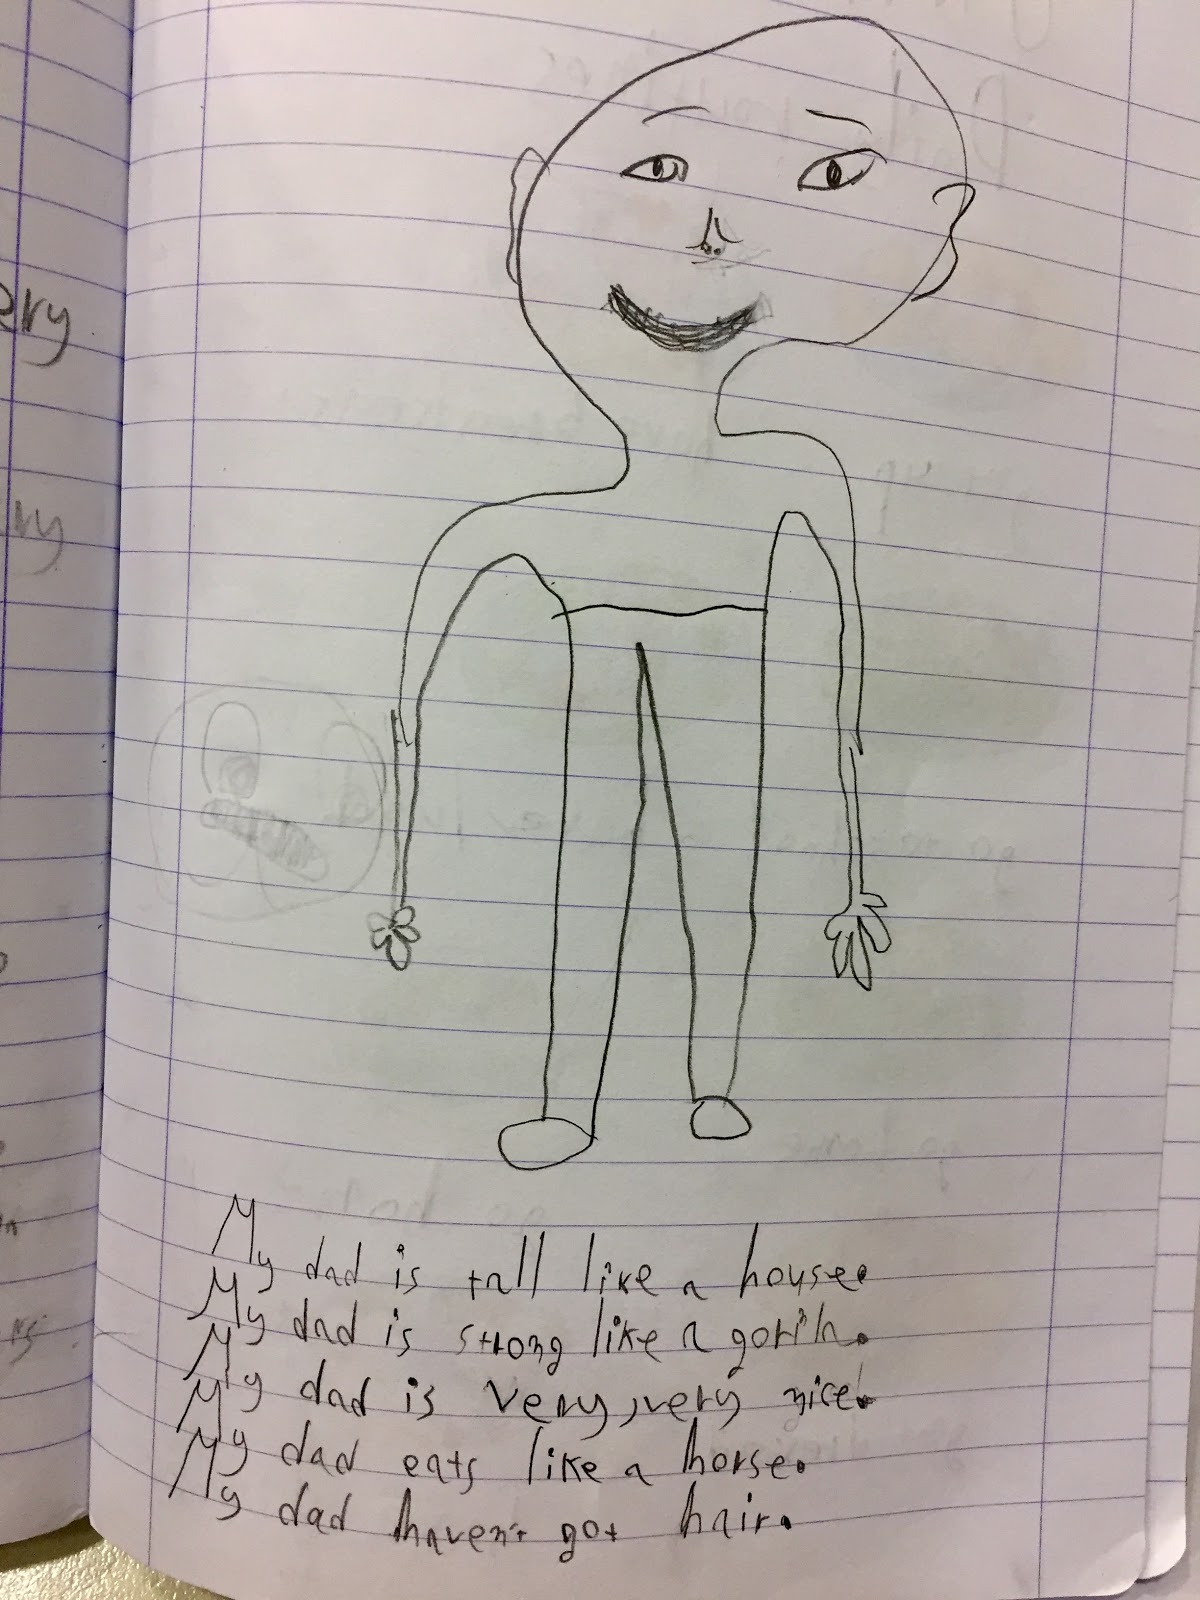 ery
ry
My dad is tall like a house.
My dad is strong like a gorila.
My dad is very, very nice.
My dad eats like a horse.
My dad haven't got hair.